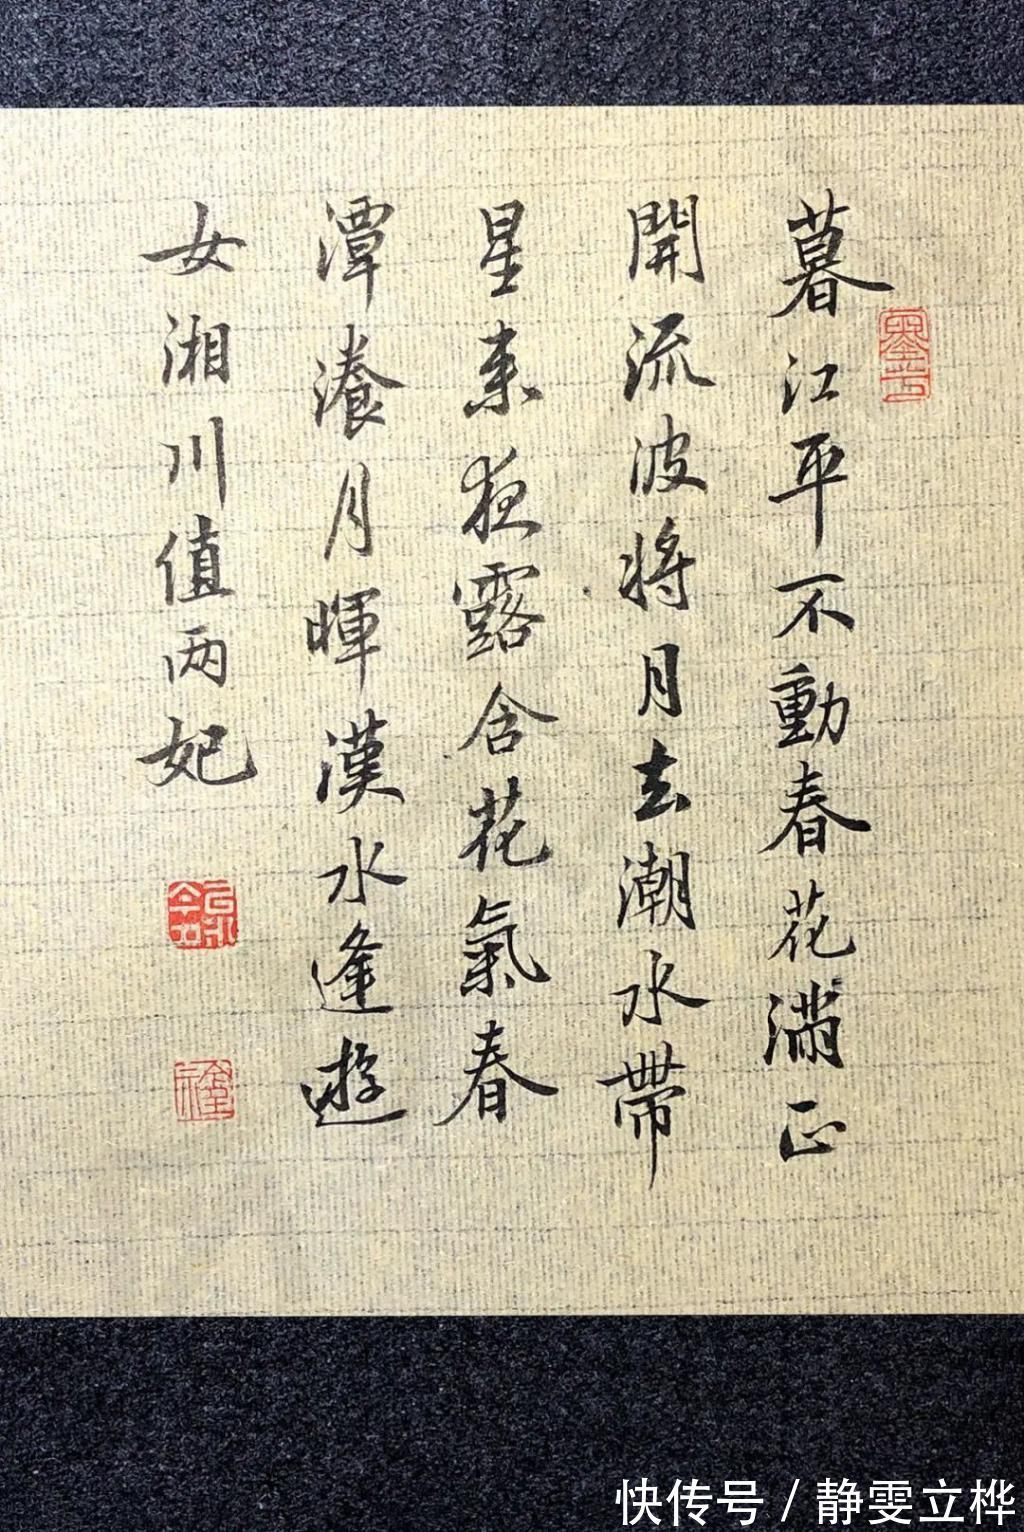 暮江平不動春花滿正
開流波将月去潮水帶
星来夜露含花氣春
潭瀁月暉漢水逢遊
女湘川值两妃
快传号／静雯立桦